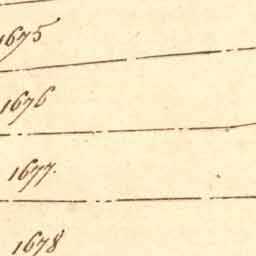 1675
1676
1677.
1678